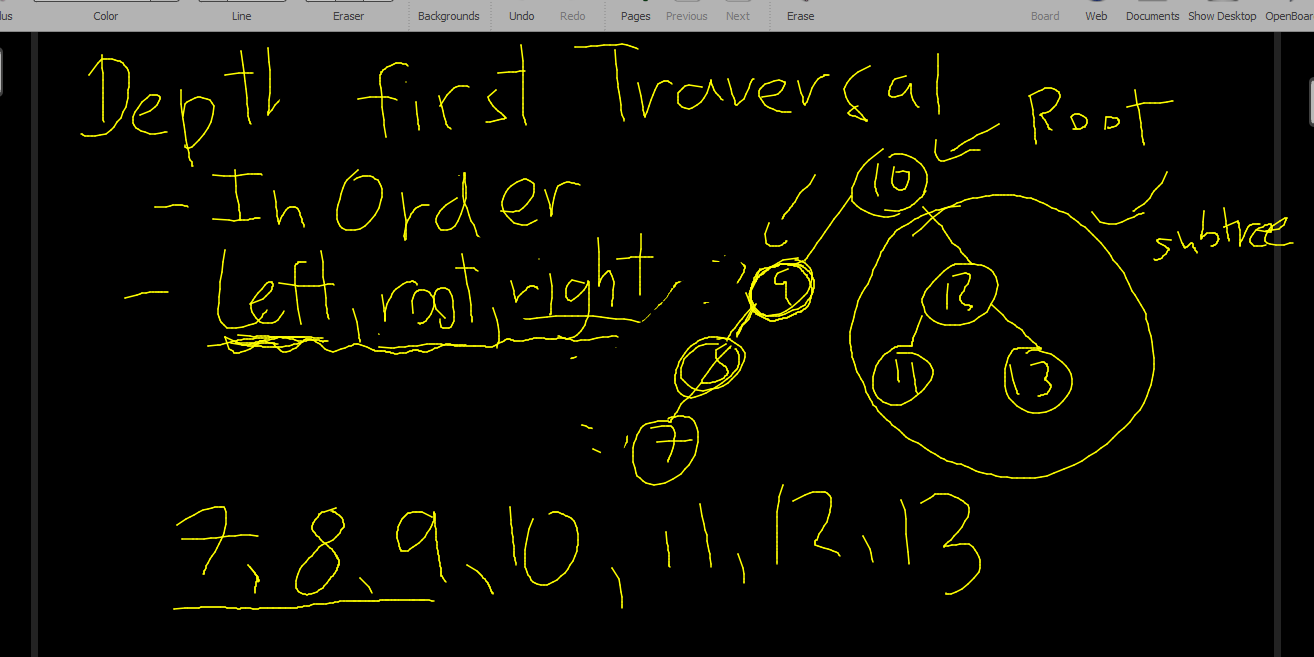 lus Color Line Eraser Backgrounds Undo Redo Pages Previous Next Erase Board Web Documents Show Desktop OpenBoar
Depth first Traversal
Root
- In Order
subtree
- Left, root, right
10
9
12
8
11
13
7
7, 8, 9, 10, 11, 12, 13